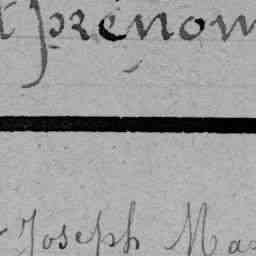 t prénom
Joseph Ma